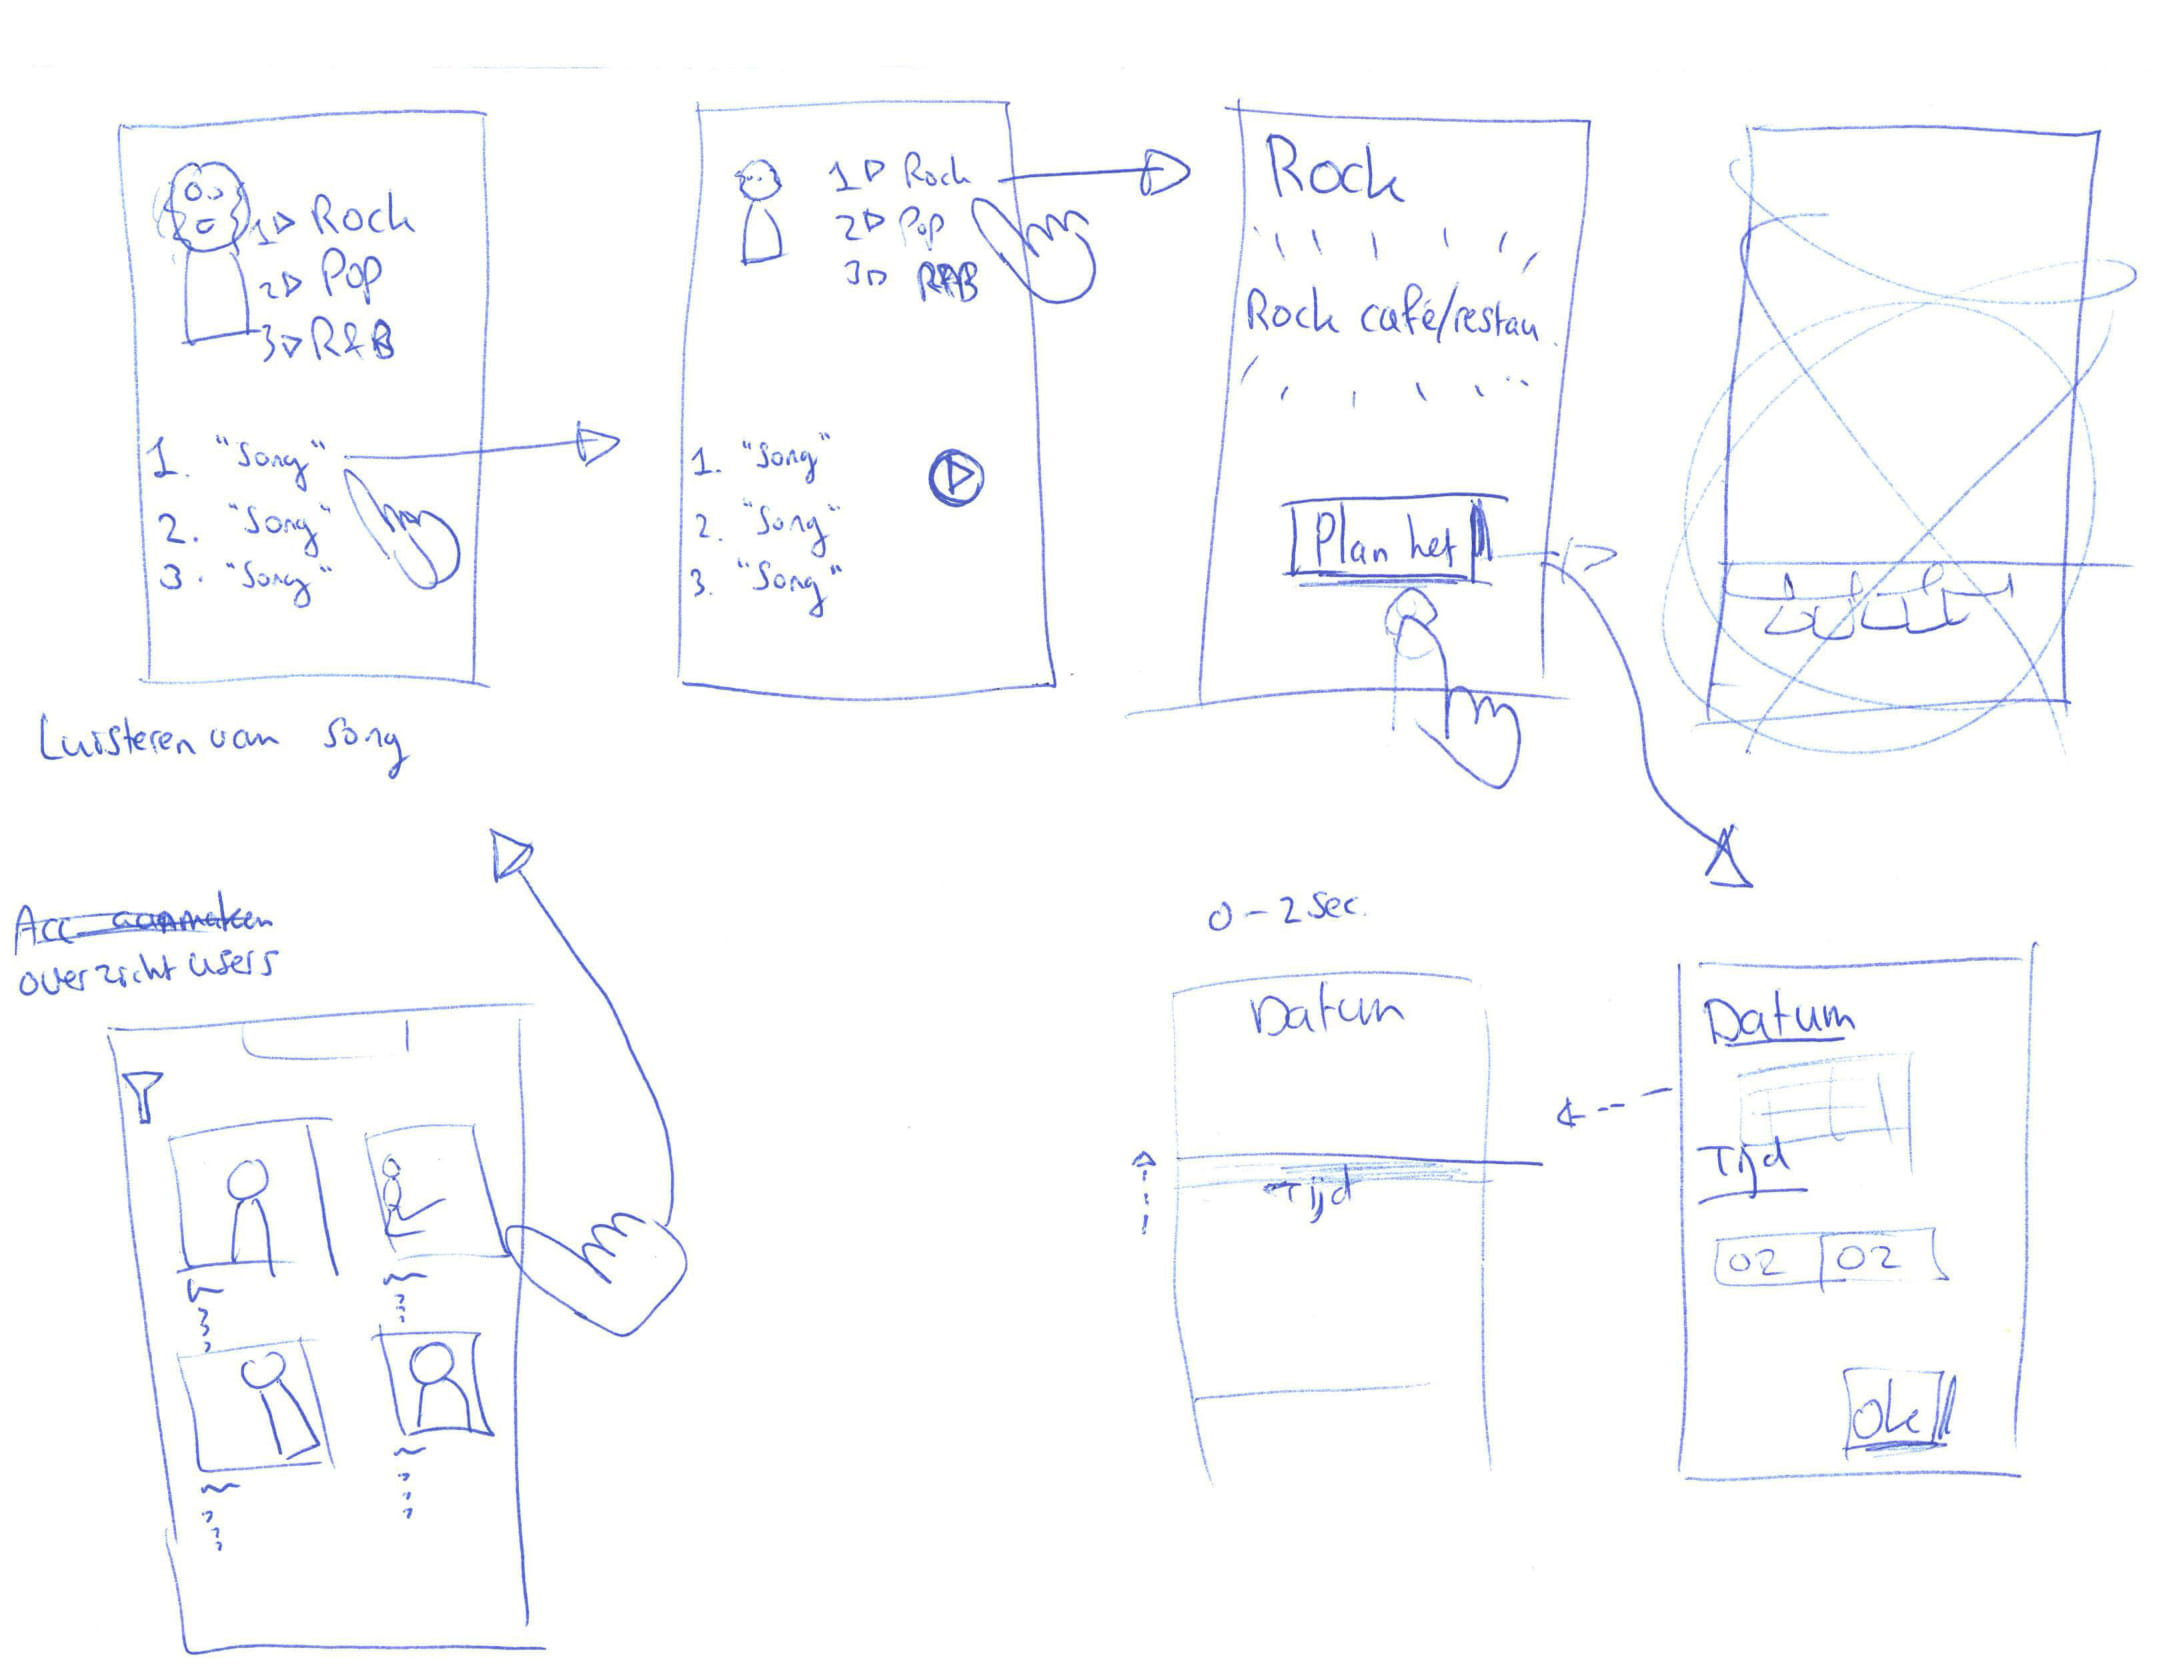 1▷ Rock
2▷ Pop
3▷ R&B
1. "Song"
2. "Song"
3. "Song"
Luisteren van song
1▷ Rock
2▷ Pop
3▷ R&B
1. "Song"
2. "Song"
3. "Song"
Rock
Rock café/restau
Plan het
Acc aanmaken
overzicht users
0-2 sec.
Datum
Tijd
Datum
Tijd
02 02
Ok